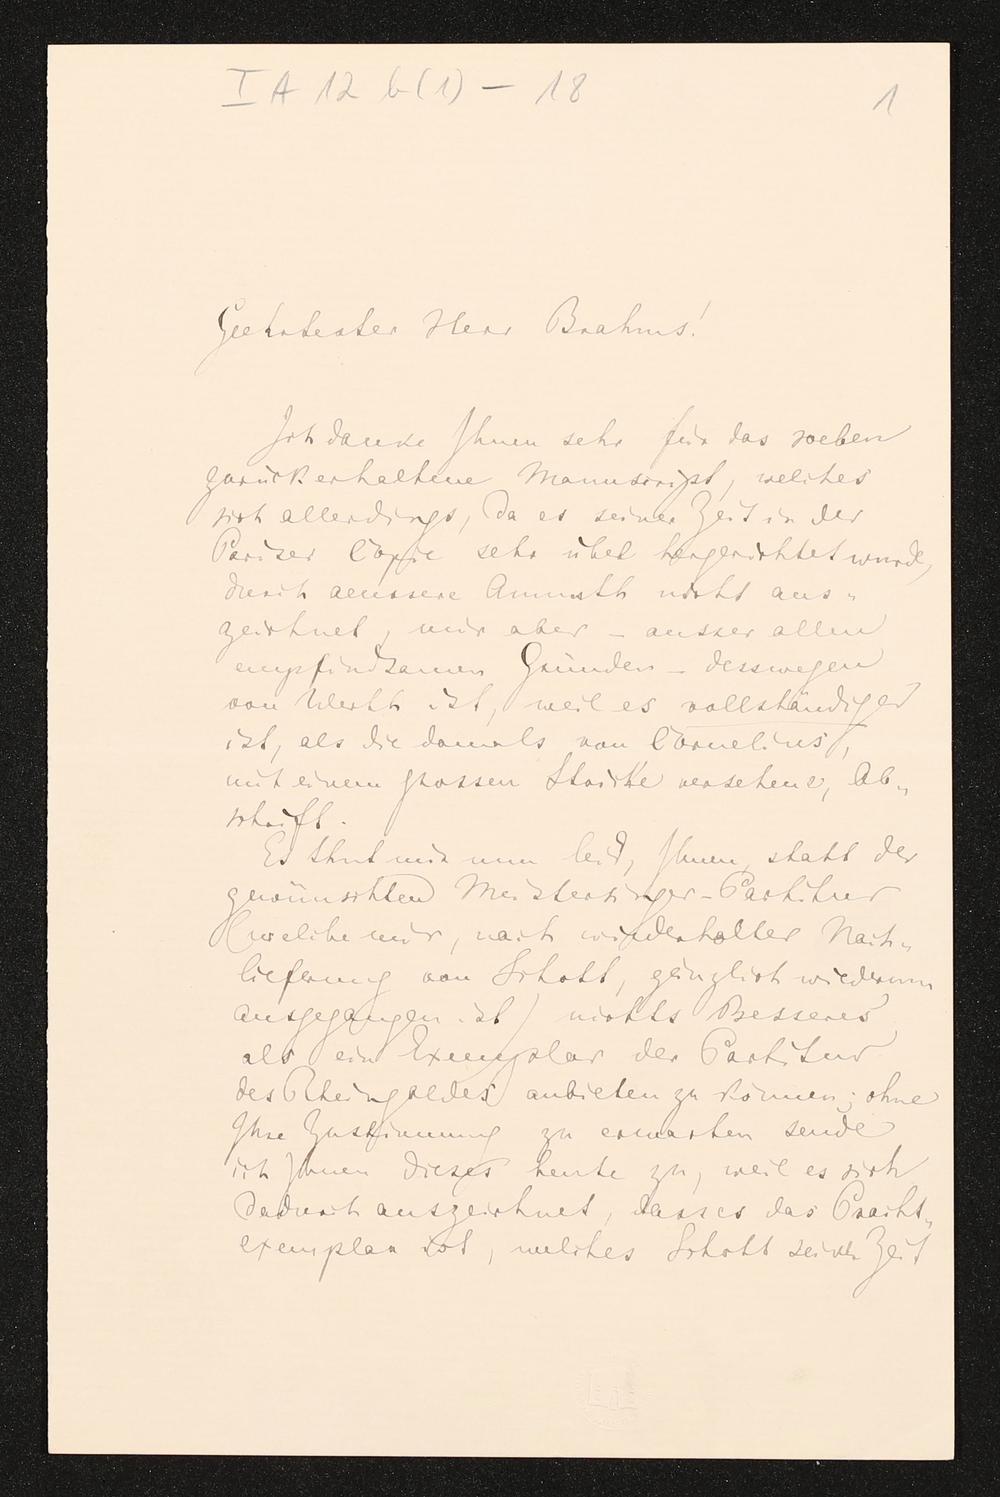 I A 12 b(1) – 18
1
Geehrtester Herr Brahms!
Ich danke Ihnen sehr für das soeben
zurückerhaltene Manuscript, welches
sich allerdings, da es seiner Zeit in der
Pariser Copie sehr übel hergerichtet wurde,
durch aeussere Anmuth nicht aus-
zeichnet, mir aber – ausser allen
empfindsamen Gründen – desswegen
von Werth ist, weil es vollständiger
ist, als die damals von Cornelius,
mit einem grossen Striche versehene, Ab-
schrift.
Es thut mir nun leid, Ihnen, statt der
gewünschten Meistersinger-Partitur
(welche mir, nach wiederholter Nach-
lieferung von Schott, gänzlich wiederum
ausgegangen ist) nichts Besseres
als ein Exemplar der Partitur
des Rheingoldes anbieten zu können; ohne
Ihre Zustimmung zu erwarten sende
ich Ihnen dieses heute zu, weil es sich
dadurch auszeichnet, dass es das Pracht-
exemplar ist, welches Schott seiner Zeit